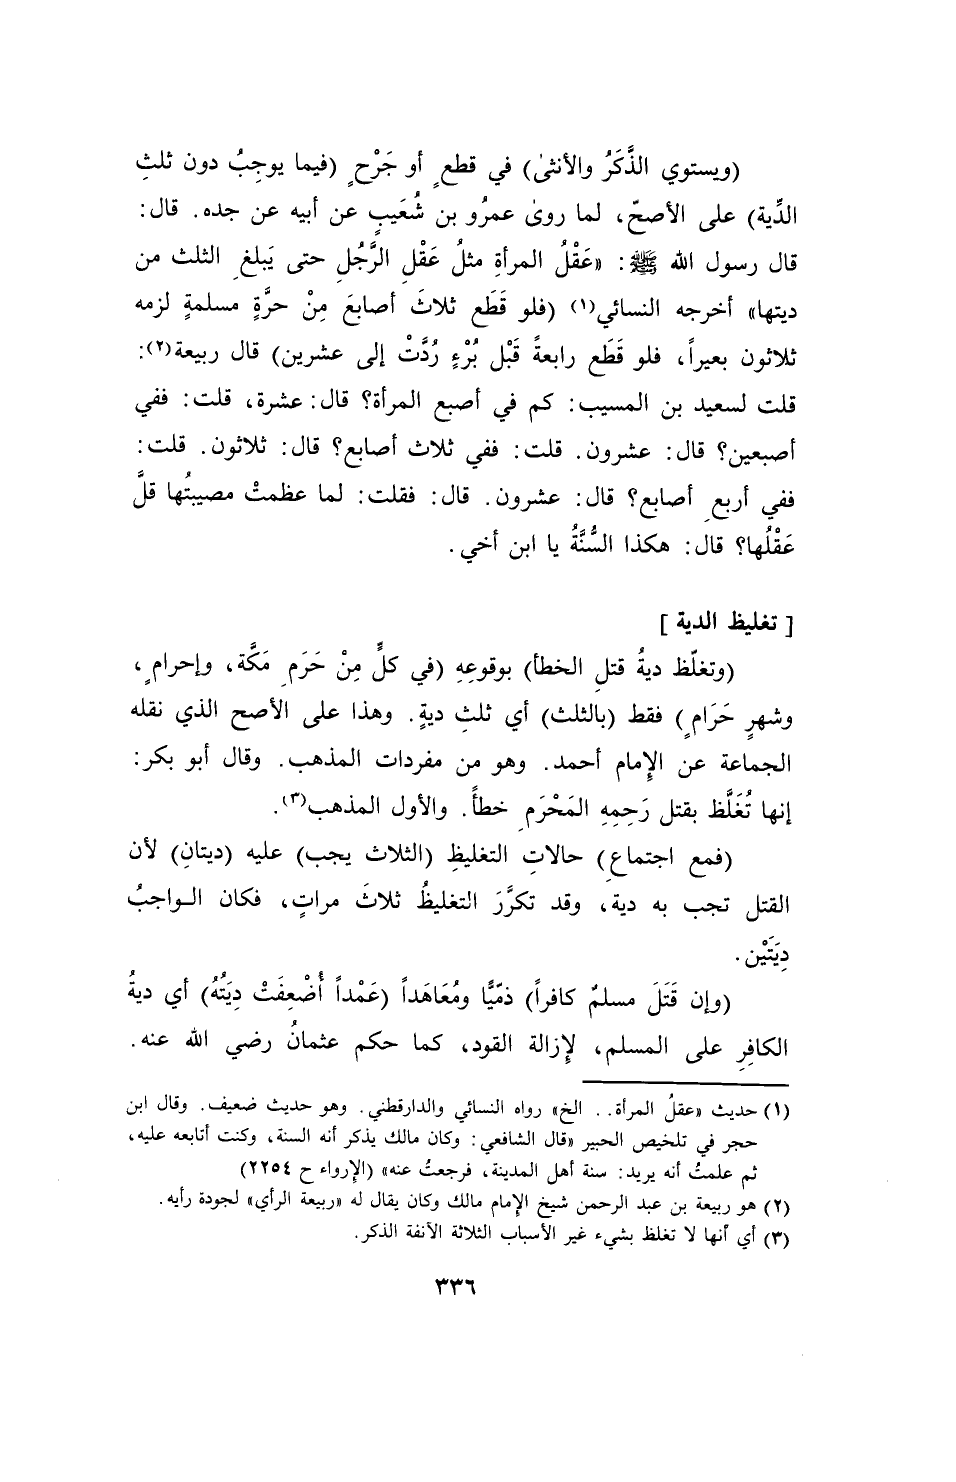 (ويستوي الذَّكَرُ والأنثىٰ) في قطعٍ أو جَرْحٍ (فيما يوجِبُ دون ثلثِ
الدِّية) على الأصحّ، لما روىٰ عمرُو بن شُعَيبٍ عن أبيه عن جده. قال:
قال رسول الله ﷺ: «عَقْلُ المرأةِ مثلُ عَقْلِ الرَّجُلِ حتى يَبلغِ الثلث من
ديتها» أخرجه النسائي(١) (فلو قَطَع ثلاثَ أصابعَ مِنْ حرَّةٍ مسلمةٍ لزمه
ثلاثون بعيراً، فلو قَطَع رابعةً قَبْل بُرْءٍ رُدَّتْ إلى عشرين) قال ربيعة(٢):
قلت لسعيد بن المسيب: كم في أصبع المرأة؟ قال: عشرة، قلت: ففي
أصبعين؟ قال: عشرون. قلت: ففي ثلاث أصابع؟ قال: ثلاثون. قلت:
ففي أربعِ أصابع؟ قال: عشرون. قال: فقلت: لما عظمتْ مصيبتُها قلَّ
عَقْلُها؟ قال: هكذا السُّنَّةُ يا ابن أخي.
[ تغليظ الدية ]
(وتغلّظ ديةُ قتلِ الخطأ) بوقوعِهِ (في كلٍّ مِنْ حَرَمِ مَكَّة، وإحرامٍ،
وشهرٍ حَرَامٍ) فقط (بالثلث) أي ثلثِ ديةٍ. وهذا على الأصح الذي نقله
الجماعة عن الإمام أحمد. وهو من مفردات المذهب. وقال أبو بكر:
إنها تُغَلَّظ بقتل رَحِمِهِ المَحْرَمِ خطأً. والأول المذهب(٣).
(فمع اجتماعِ) حالاتِ التغليظِ (الثلاث يجب) عليه (ديتانِ) لأن
القتل تجب به دية، وقد تكرَّرَ التغليظُ ثلاثَ مراتٍ، فكان الواجبُ
دِيَتَيْن.
(وإن قَتَلَ مسلمٌ كافراً) ذمّيًّا ومُعَاهَداً (عَمْداً أُضْعِفَتْ دِيَتُهُ) أي ديةُ
الكافِرِ على المسلم، لإزالة القود، كما حكم عثمانُ رضي الله عنه.
(١) حديث «عقلُ المرأة. . الخ» رواه النسائي والدارقطني. وهو حديث ضعيف. وقال ابن
حجر في تلخيص الحبير «قال الشافعي: وكان مالك يذكر أنه السنة، وكنت أتابعه عليه،
ثم علمتُ أنه يريد: سنة أهل المدينة، فرجعتُ عنه» (الإرواء ح ٢٢٥٤)
(٢) هو ربيعة بن عبد الرحمن شيخ الإمام مالك وكان يقال له «ربيعة الرأي» لجودة رأيه.
(٣) أي أنها لا تغلظ بشيء غير الأسباب الثلاثة الآنفة الذكر.
٣٣٦